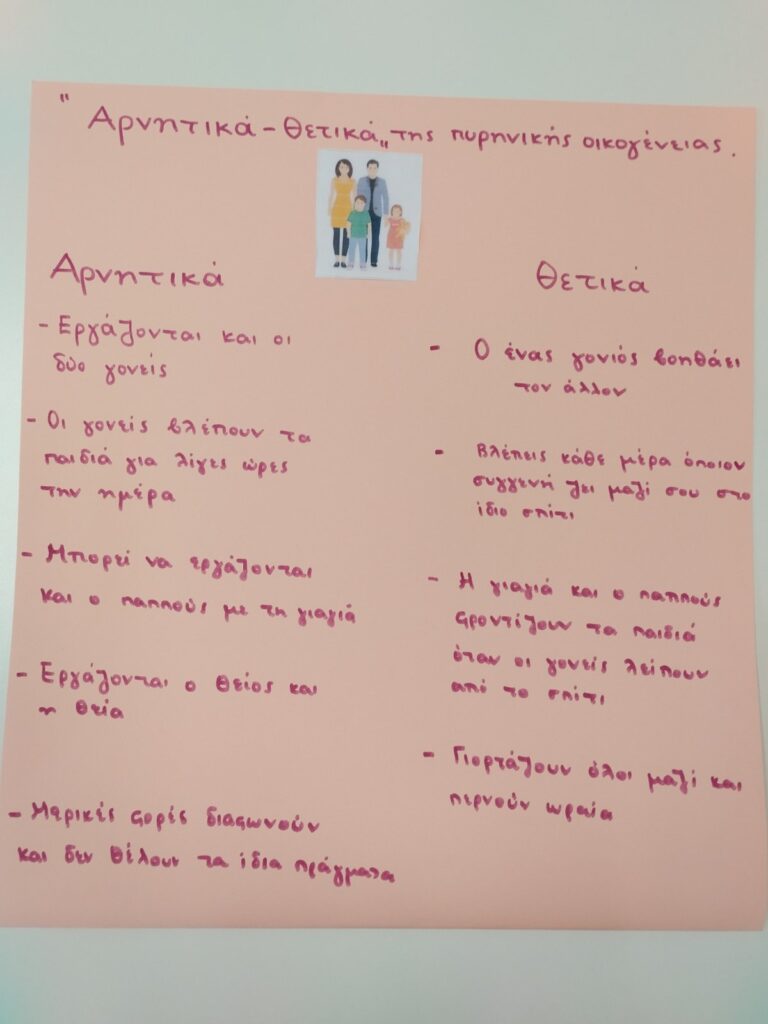 " Αρνητικά - Θετικά„ της πυρηνικής οικογένειας.
Αρνητικά
- Εργάζονται και οι
δύο γονείς
- Οι γονείς βλέπουν τα
παιδιά για λίγες ώρες
την ημέρα
- Μπορεί να εργάζονται
και ο παππούς με τη γιαγιά
- Εργάζονται ο θείος και
η θεία
- Μερικές φορές διαφωνούν
και δεν θέλουν τα ίδια πράγματα
Θετικά
- Ο ένας γονιός βοηθάει
τον άλλον
- Βλέπεις κάθε μέρα όποιον
συγγενή ζει μαζί σου στο
ίδιο σπίτι
- Η γιαγιά και ο παππούς
φροντίζουν τα παιδιά
όταν οι γονείς λείπουν
από το σπίτι
- Γιορτάζουν όλοι μαζί και
περνούν ωραία